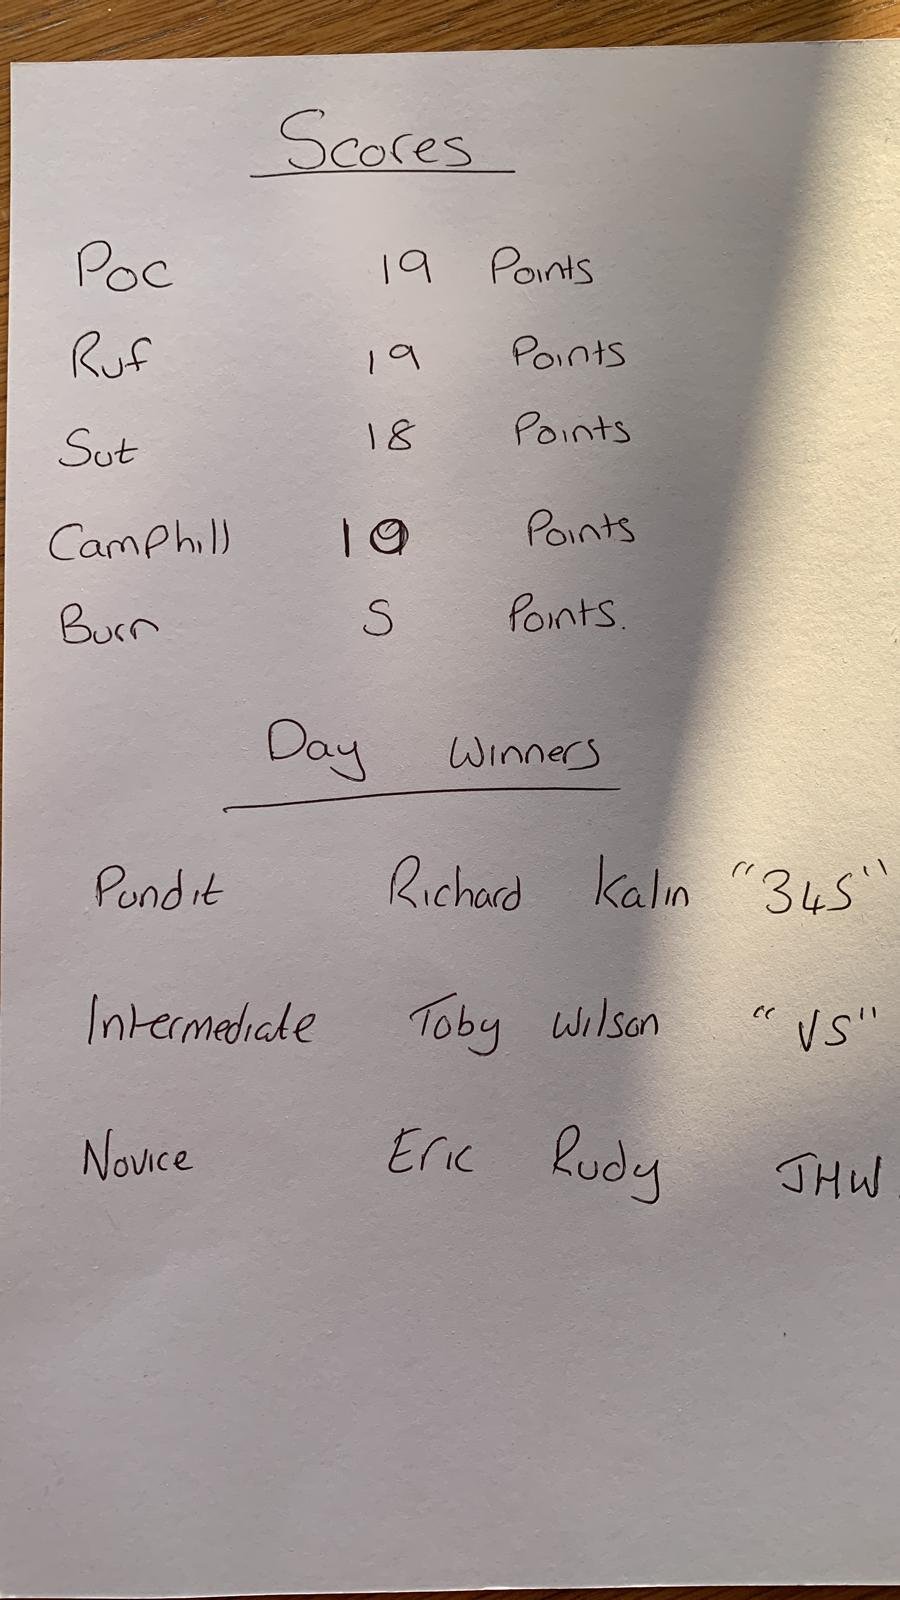 Scores
Poc 19 Points
Ruf 19 Points
Sut 18 Points
Camphill 10 Points
Burn 5 Points.
Day Winners
Pundit Richard Kalin "345"
Intermediate Toby Wilson "V5"
Novice Eric Rudy JHW.